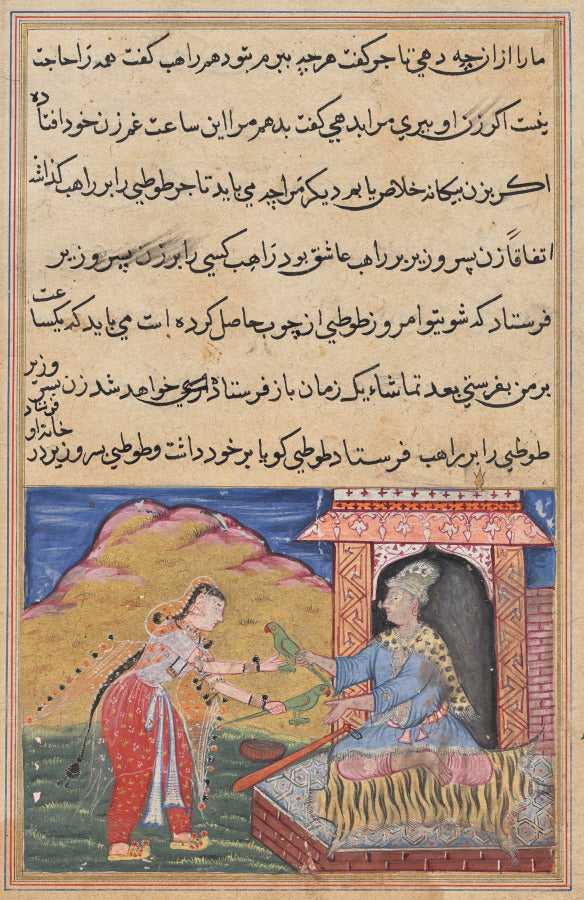 مارا ازان چه دهي تاجر كفت هر چه ببرم بتو دهم راهب كفت همه را حاجت
نيست اكر زن او ببري مرا بدهي كفت بدهم مرا اين ساعت غم زن خود افتاده
اكر بزن بيكانه خلاص يابم ديكر مرا چه مي بايد تاجر طوطي را بر راهب كذاشت
اتفاقاً زن پسر وزير بر راهب عاشق بود راهب كسي را بر زن پسر وزير
فرستاد كه شويتو امروز طوطي از چوب حاصل كرده است مي بايد كه يكساعت
بر من بفرستي بعد تماشاء يك زمان باز فرستاده خواهد شد زن پسر وزير
طوطي را بر راهب فرستاد طوطي كويا بر خود داشت و طوطي پسر وزير در خانه او فرستاد